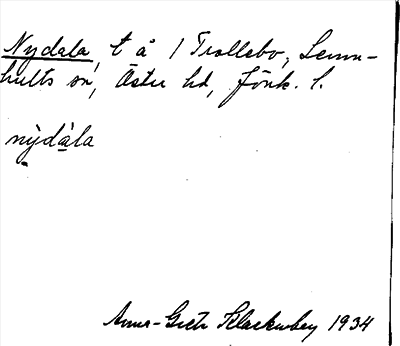 Nydala, t å / Trollebo, Lemn-
hults sn, Östra hd, Jönk. l.
nỳdàla
Anna-Greta Klackenberg 1934